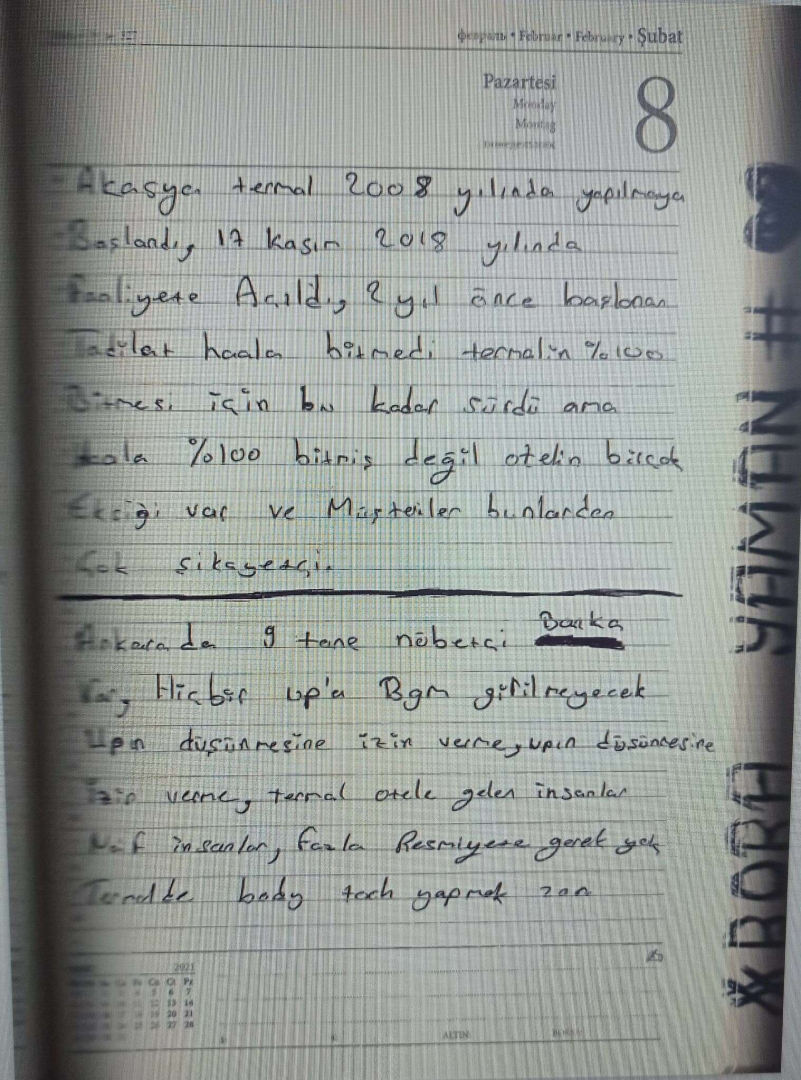 февраль • Februar • February • Şubat
Pazartesi
Monday
Montag
8
Akasya termal 2008 yılında yapılmaya
Başlandı, 17 kasım 2018 yılında
Faaliyete Açıldı, 2 yıl önce başlanan
Tadilat haala bitmedi termalin %100
Bitmesi için bu kadar sürdü ama
hala %100 bitmiş değil otelin birçok
Eksiği var ve Müşteriler bunlardan
Çok şikayetçi.
Ankarada 9 tane nöbetçi Banka
Var, Hiçbir up'a Bgm girilmeyecek
Upın düşünmesine izin verme, upın düşünmesine
İzin verme, termal otele gelen insanlar
Naif insanlar, fazla Resmiyete gerek yok
Termalde body toch yapmak zon
2021
ALTIN
YAMAN #
BORA